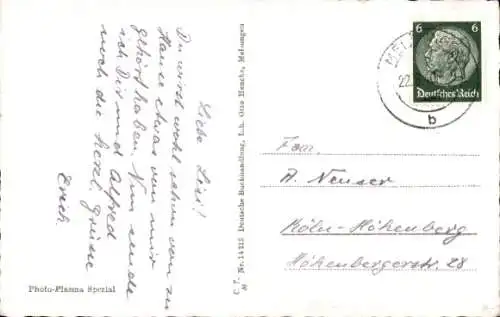 Liebe Lisi!
Du wirst wohl schon von zu
Hause etwas von mir
gehört haben. Nun sende
ich Dir und Alfred
noch die herzl. Grüsse
Erich.
Photo-Flamna Spezial
Nr. 14212 Deutsche Buchhandlung, Inh. Otto Hencke, Melsungen
6 6
Deutsches Reich
MEL
22.
b
Fam.
A. Neuser
Köln-Höhenberg
Höhenbergerstr. 28